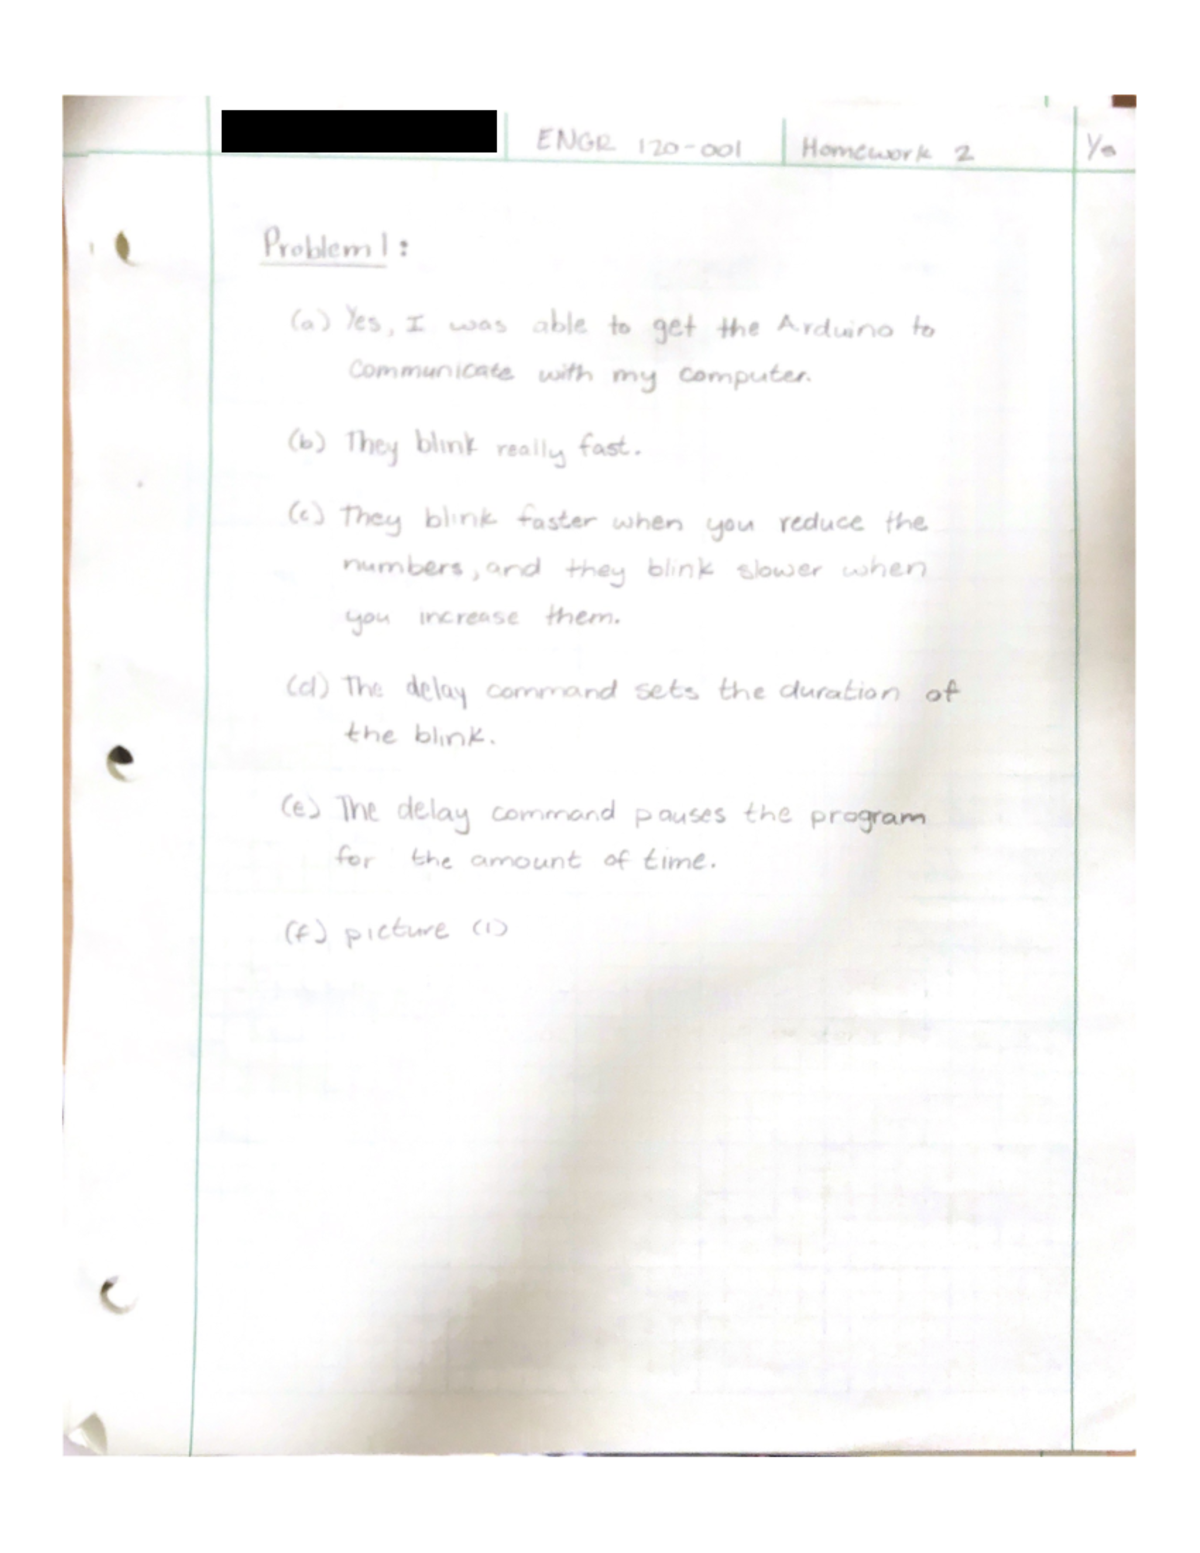 ENGR 120-001 Homework 2
Problem 1:
(a) Yes, I was able to get the Arduino to
communicate with my computer.
(b) They blink really fast.
(c) They blink faster when you reduce the
numbers, and they blink slower when
you increase them.
(d) The delay command sets the duration of
the blink.
(e) The delay command pauses the program
for the amount of time.
(f) picture (1)